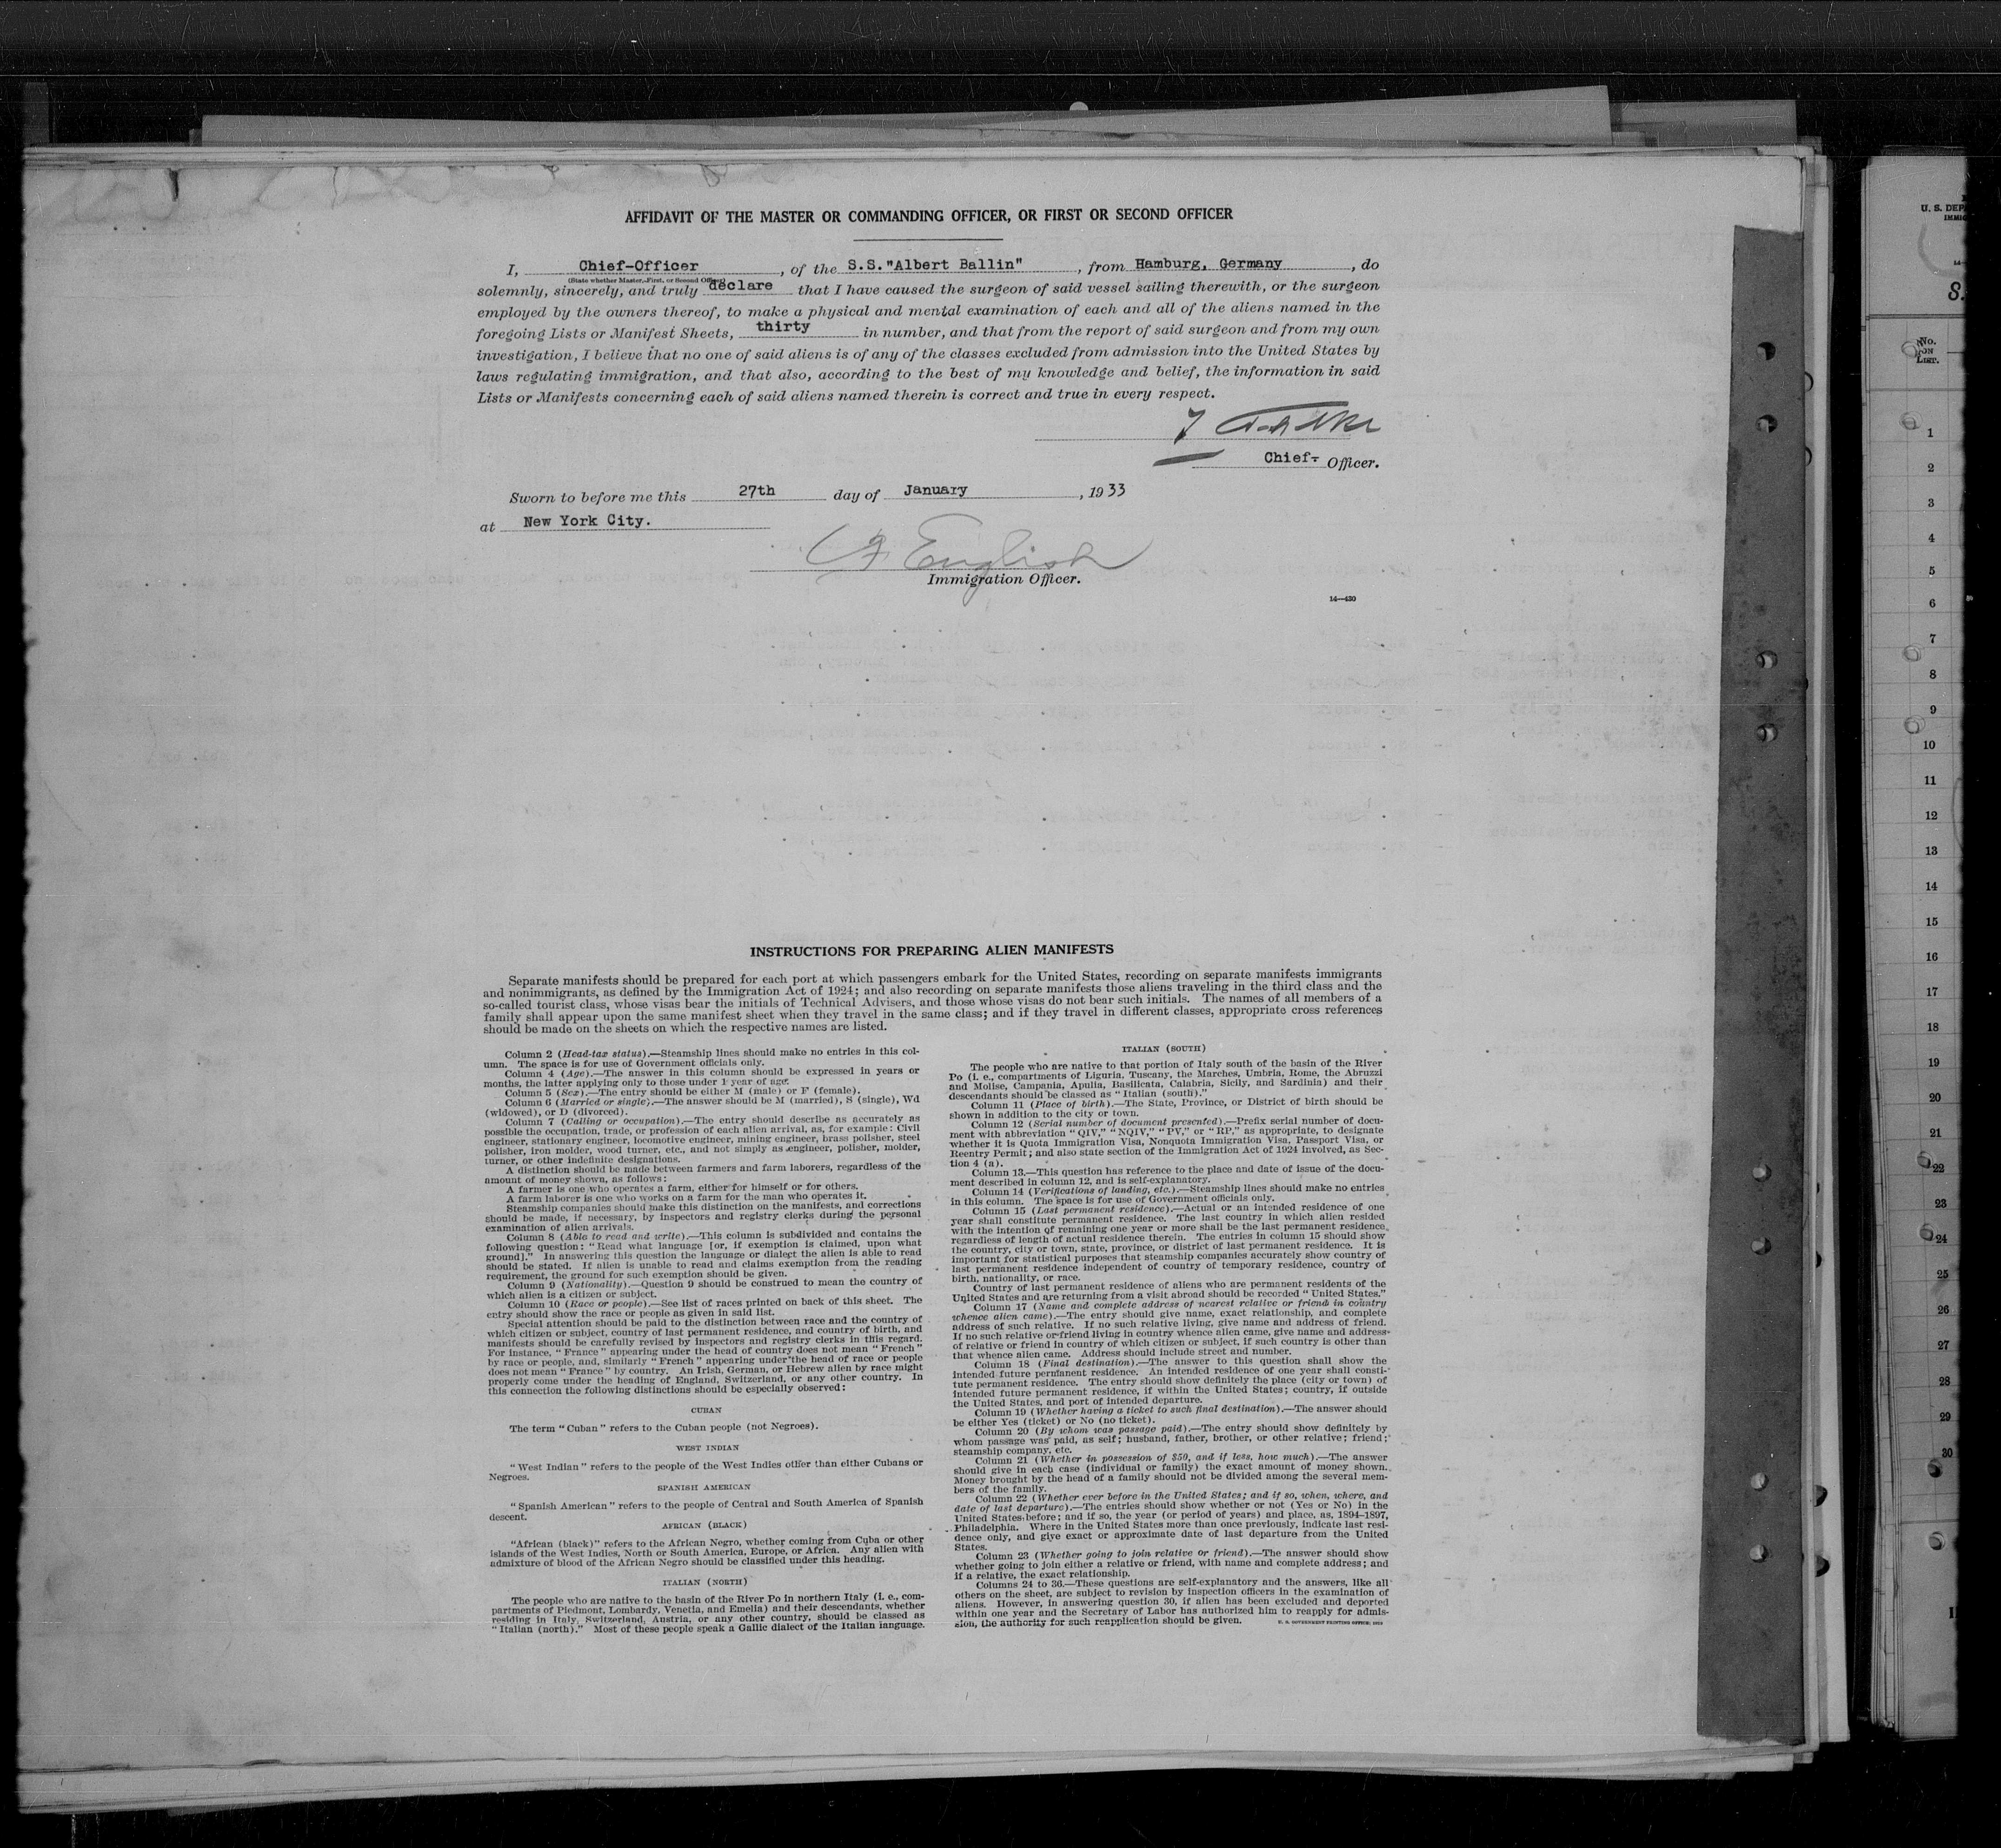 AFFIDAVIT OF THE MASTER OR COMMANDING OFFICER, OR FIRST OR SECOND OFFICER
I, Chief-Officer, of the S.S."Albert Ballin", from Hamburg, Germany, do
(State whether Master, First, or Second Officer)
solemnly, sincerely, and truly declare that I have caused the surgeon of said vessel sailing therewith, or the surgeon
employed by the owners thereof, to make a physical and mental examination of each and all of the aliens named in the
foregoing Lists or Manifest Sheets, thirty in number, and that from the report of said surgeon and from my own
investigation, I believe that no one of said aliens is of any of the classes excluded from admission into the United States by
laws regulating immigration, and that also, according to the best of my knowledge and belief, the information in said
Lists or Manifests concerning each of said aliens named therein is correct and true in every respect.
Chief- Officer.
Sworn to before me this 27th day of January, 1933
at New York City.
English
Immigration Officer.
14—430
INSTRUCTIONS FOR PREPARING ALIEN MANIFESTS
Separate manifests should be prepared for each port at which passengers embark for the United States, recording on separate manifests immigrants
and nonimmigrants, as defined by the Immigration Act of 1924; and also recording on separate manifests those aliens traveling in the third class and the
so-called tourist class, whose visas bear the initials of Technical Advisers, and those whose visas do not bear such initials. The names of all members of a
family shall appear upon the same manifest sheet when they travel in the same class; and if they travel in different classes, appropriate cross references
should be made on the sheets on which the respective names are listed.
Column 2 (Head-tax status).—Steamship lines should make no entries in this col-
umn. The space is for use of Government officials only.
Column 4 (Age).—The answer in this column should be expressed in years or
months, the latter applying only to those under 1 year of age.
Column 5 (Sex).—The entry should be either M (male) or F (female).
Column 6 (Married or single).—The answer should be M (married), S (single), Wd
(widowed), or D (divorced).
Column 7 (Calling or occupation).—The entry should describe as accurately as
possible the occupation, trade, or profession of each alien arrival, as, for example: Civil
engineer, stationary engineer, locomotive engineer, mining engineer, brass polisher, steel
polisher, iron molder, wood turner, etc., and not simply as engineer, polisher, molder,
turner, or other indefinite designations.
A distinction should be made between farmers and farm laborers, regardless of the
amount of money shown, as follows:
A farmer is one who operates a farm, either for himself or for others.
A farm laborer is one who works on a farm for the man who operates it.
Steamship companies should make this distinction on the manifests, and corrections
should be made, if necessary, by inspectors and registry clerks during the personal
examination of alien arrivals.
Column 8 (Able to read and write).—This column is subdivided and contains the
following question: "Read what language [or, if exemption is claimed, upon what
ground]." In answering this question the language or dialect the alien is able to read
should be stated. If alien is unable to read and claims exemption from the reading
requirement, the ground for such exemption should be given.
Column 9 (Nationality).—Question 9 should be construed to mean the country of
which alien is a citizen or subject.
Column 10 (Race or people).—See list of races printed on back of this sheet. The
entry should show the race or people as given in said list.
Special attention should be paid to the distinction between race and the country of
which citizen or subject, country of last permanent residence, and country of birth, and
manifests should be carefully revised by inspectors and registry clerks in this regard.
For instance, "France" appearing under the head of country does not mean "French"
by race or people, and, similarly "French" appearing under the head of race or people
does not mean "France" by country. An Irish, German, or Hebrew alien by race might
properly come under the heading of England, Switzerland, or any other country. In
this connection the following distinctions should be especially observed:
CUBAN
The term "Cuban" refers to the Cuban people (not Negroes).
WEST INDIAN
"West Indian" refers to the people of the West Indies other than either Cubans or
Negroes.
SPANISH AMERICAN
"Spanish American" refers to the people of Central and South America of Spanish
descent.
AFRICAN (BLACK)
"African (black)" refers to the African Negro, whether coming from Cuba or other
islands of the West Indies, North or South America, Europe, or Africa. Any alien with
admixture of blood of the African Negro should be classified under this heading.
ITALIAN (NORTH)
The people who are native to the basin of the River Po in northern Italy (i. e., com-
partments of Piedmont, Lombardy, Venetia, and Emelia) and their descendants, whether
residing in Italy, Switzerland, Austria, or any other country, should be classed as
"Italian (north)." Most of these people speak a Gallic dialect of the Italian language.
ITALIAN (SOUTH)
The people who are native to that portion of Italy south of the basin of the River
Po (i. e., compartments of Liguria, Tuscany, the Marches, Umbria, Rome, the Abruzzi
and Molise, Campania, Apulia, Basilicata, Calabria, Sicily, and Sardinia) and their
descendants should be classed as "Italian (south)."
Column 11 (Place of birth).—The State, Province, or District of birth should be
shown in addition to the city or town.
Column 12 (Serial number of document presented).—Prefix serial number of docu-
ment with abbreviation "QIV," "NQIV," "PV," or "RP," as appropriate, to designate
whether it is Quota Immigration Visa, Nonquota Immigration Visa, Passport Visa, or
Reentry Permit; and also state section of the Immigration Act of 1924 involved, as Sec-
tion 4 (a).
Column 13.—This question has reference to the place and date of issue of the docu-
ment described in column 12, and is self-explanatory.
Column 14 (Verifications of landing, etc.).—Steamship lines should make no entries
in this column. The space is for use of Government officials only.
Column 15 (Last permanent residence).—Actual or an intended residence of one
year shall constitute permanent residence. The last country in which alien resided
with the intention of remaining one year or more shall be the last permanent residence
regardless of length of actual residence therein. The entries in column 15 should show
the country, city or town, state, province, or district of last permanent residence. It is
important for statistical purposes that steamship companies accurately show country of
last permanent residence independent of country of temporary residence, country of
birth, nationality, or race.
Country of last permanent residence of aliens who are permanent residents of the
United States and are returning from a visit abroad should be recorded "United States."
Column 17 (Name and complete address of nearest relative or friend in country
whence alien came).—The entry should give name, exact relationship, and complete
address of such relative. If no such relative living, give name and address of friend.
If no such relative or friend living in country whence alien came, give name and address
of relative or friend in country of which citizen or subject, if such country is other than
that whence alien came. Address should include street and number.
Column 18 (Final destination).—The answer to this question shall show the
intended future permanent residence. An intended residence of one year shall consti-
tute permanent residence. The entry should show definitely the place (city or town) of
intended future permanent residence, if within the United States; country, if outside
the United States, and port of intended departure.
Column 19 (Whether having a ticket to such final destination).—The answer should
be either Yes (ticket) or No (no ticket).
Column 20 (By whom was passage paid).—The entry should show definitely by
whom passage was paid, as self; husband, father, brother, or other relative; friend;
steamship company, etc.
Column 21 (Whether in possession of $50, and if less, how much).—The answer
should give in each case (individual or family) the exact amount of money shown.
Money brought by the head of a family should not be divided among the several mem-
bers of the family.
Column 22 (Whether ever before in the United States; and if so, when, where, and
date of last departure).—The entries should show whether or not (Yes or No) in the
United States before; and if so, the year (or period of years) and place, as, 1894-1897,
Philadelphia. Where in the United States more than once previously, indicate last resi-
dence only, and give exact or approximate date of last departure from the United
States.
Column 23 (Whether going to join relative or friend).—The answer should show
whether going to join either a relative or friend, with name and complete address; and
if a relative, the exact relationship.
Columns 24 to 36.—These questions are self-explanatory and the answers, like all
others on the sheet, are subject to revision by inspection officers in the examination of
aliens. However, in answering question 30, if alien has been excluded and deported
within one year and the Secretary of Labor has authorized him to reapply for admis-
sion, the authority for such reapplication should be given.
U. S. GOVERNMENT PRINTING OFFICE:
U. S. DEP
IMMIG
S.
No.
ON
LIST.
1
2
3
4
5
6
7
8
9
10
11
12
13
14
15
16
17
18
19
20
21
22
23
24
25
26
27
28
29
30